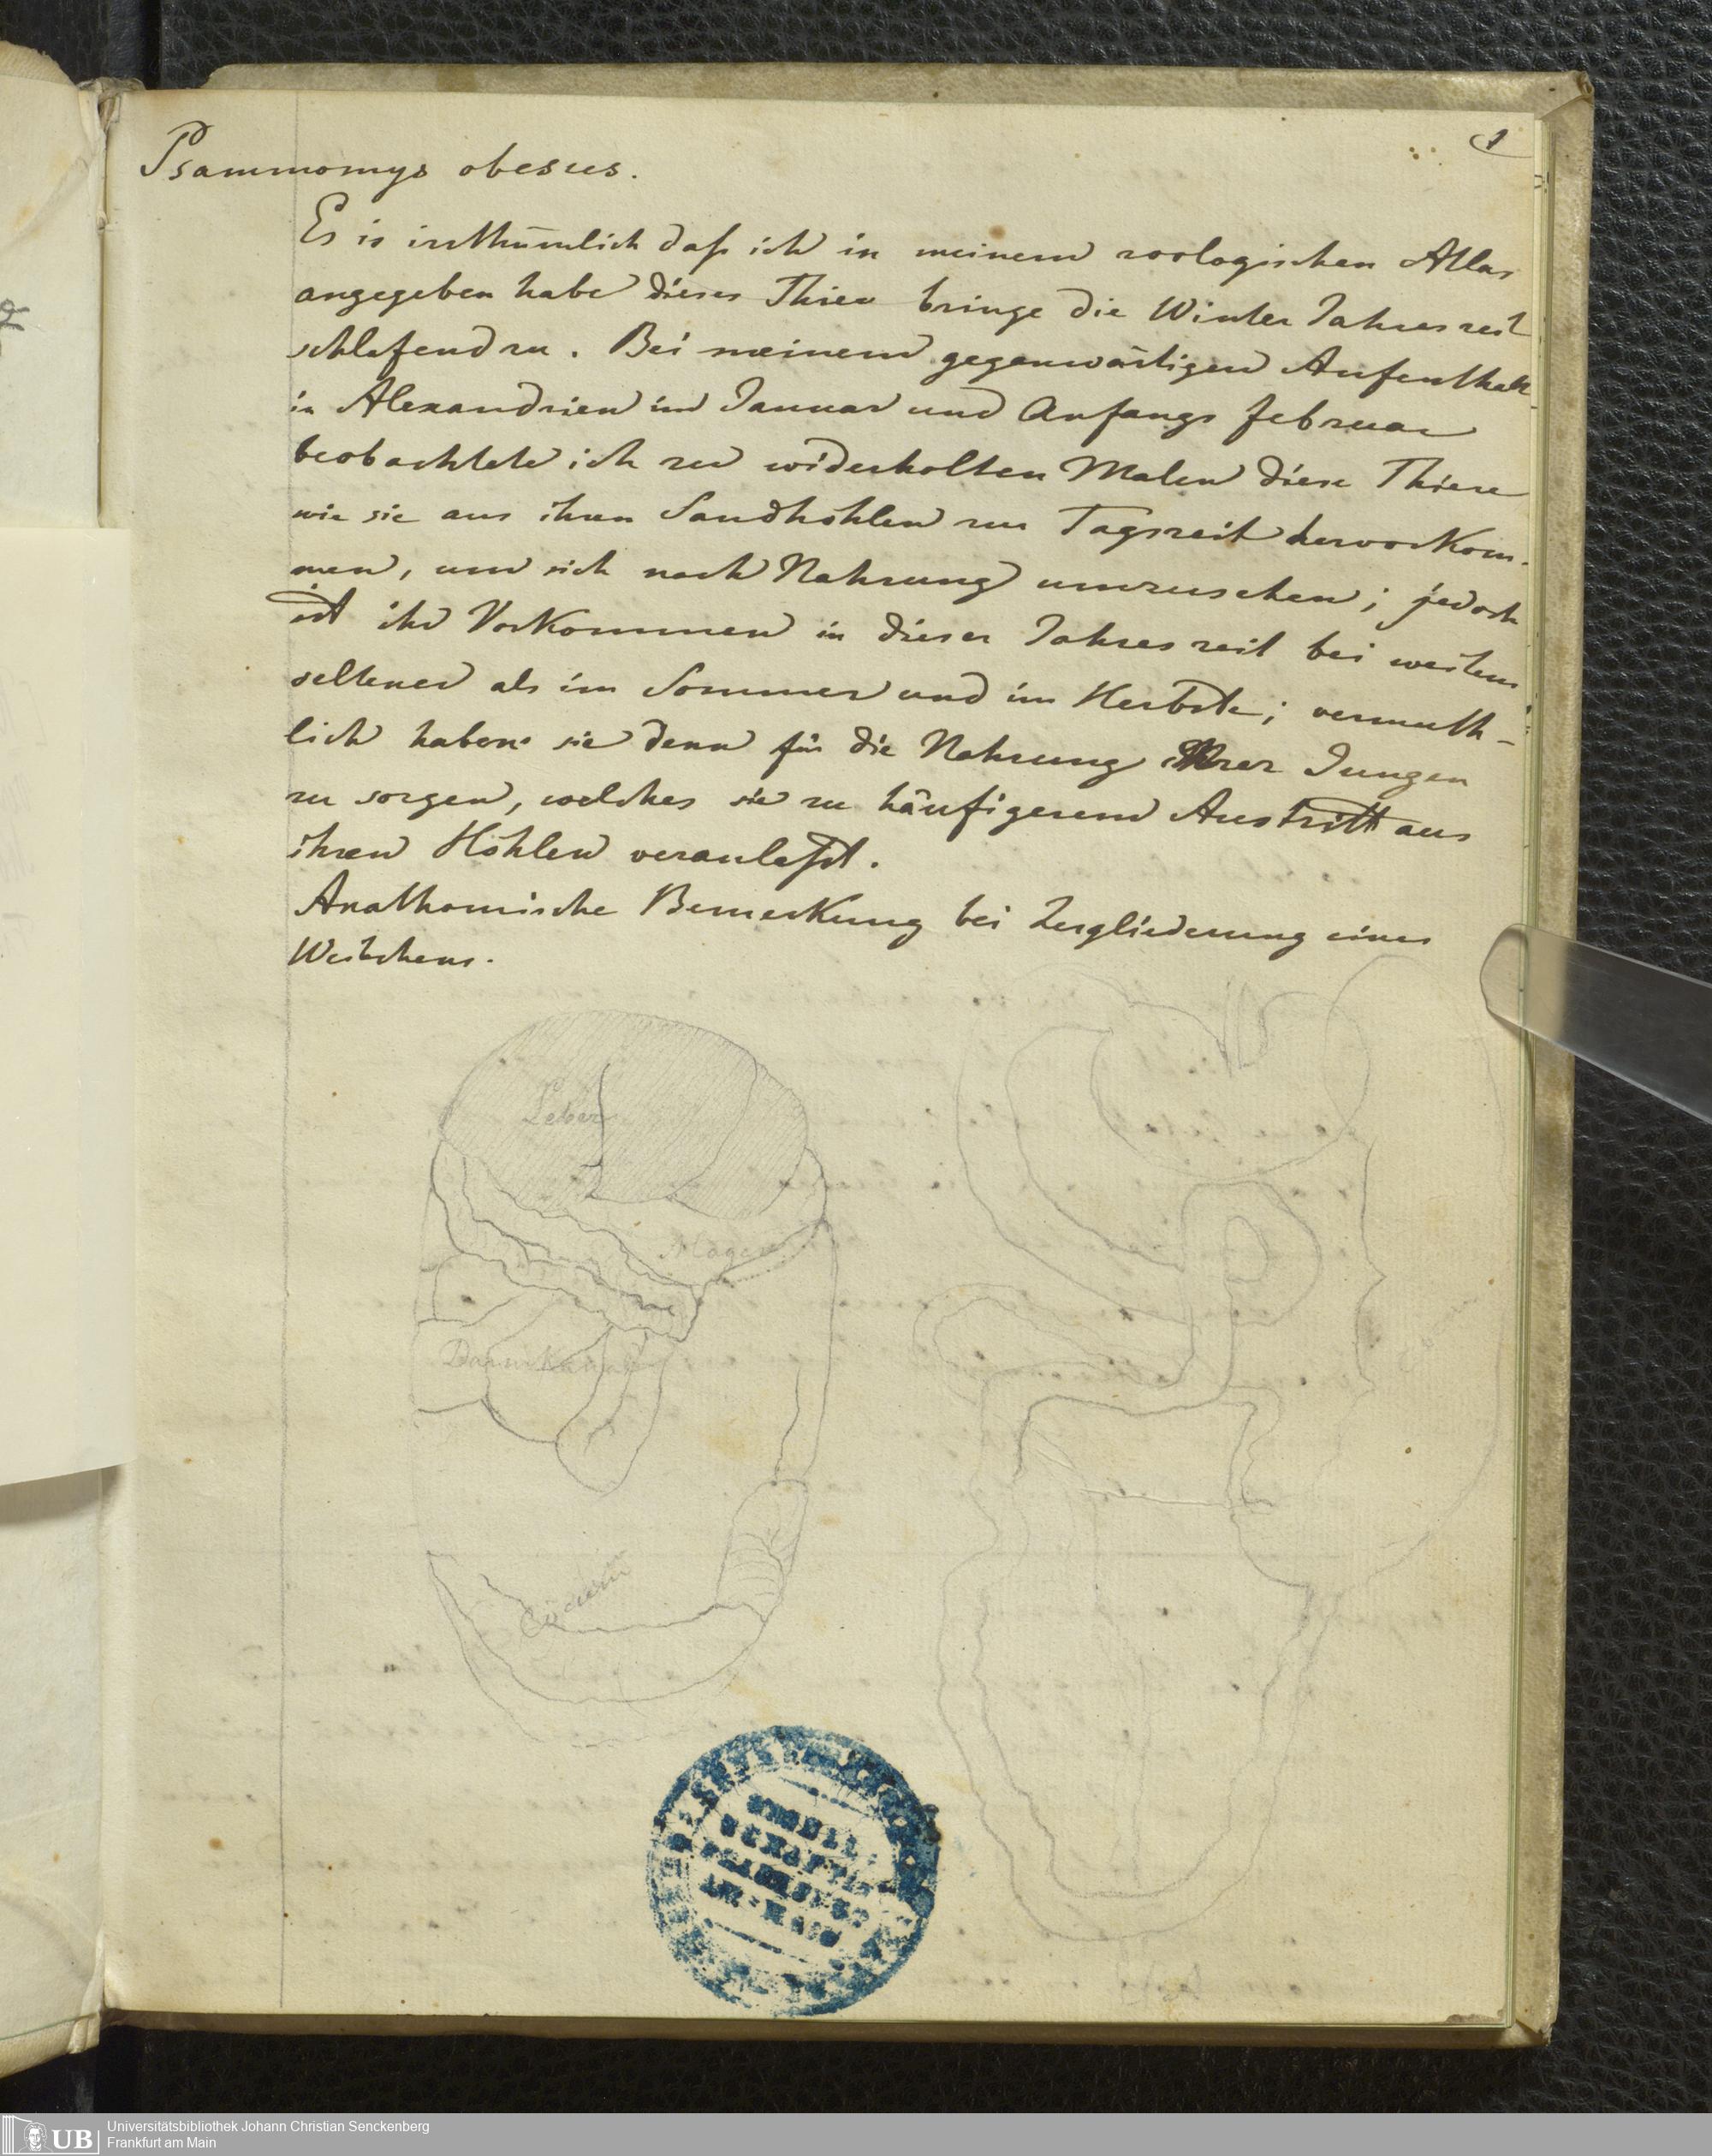 1
Psammomys obesus.
Es is irrthümlich daſs ich in meinem zoologischen Atlas
angegeben habe dieses Thier bringe die Winter Jahreszeit
schlafend zu. Bei meinem gegenwärtigen Aufenthalt
in Alexandrien im Januar und Anfangs Februar
beobachtete ich zu widerholten Malen diese Thiere
wie sie aus ihren Sandhöhlen zur Tagszeit hervorkom-
men, um sich nach Nahrung umzusehen; jedoch
ist ihr Vorkommen in dieser Jahreszeit bei weitem
seltener als im Sommer und im Herbste; vermuth-
lich haben sie denn für die Nahrung ihrer Jungen
zu sorgen, welches sie zu häufigerem Austritt aus
ihren Höhlen veranlaſst.
Anathomische Bemerkung bei Zergliederung eines
Weibchens.
Leber
Magen
Darmkanal
Cöcum
AM MAIN
UB
Universitätsbibliothek Johann Christian Senckenberg
Frankfurt am Main